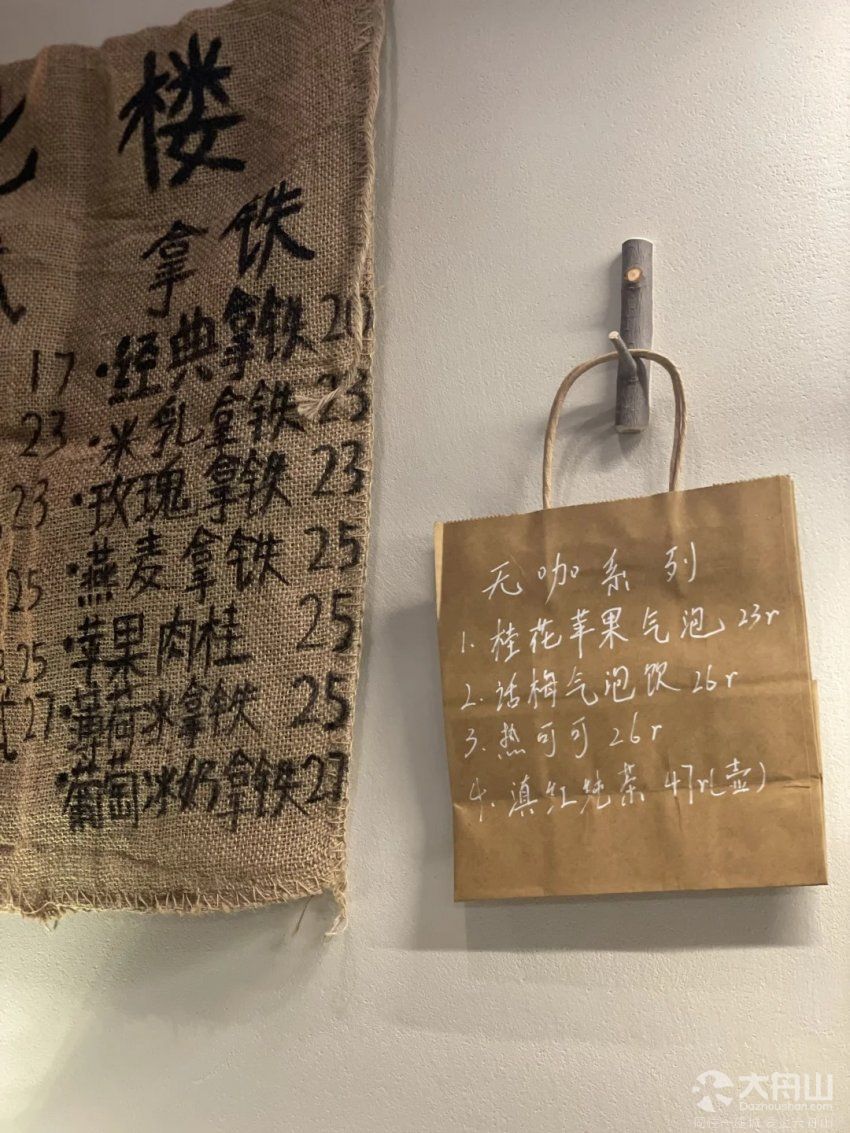 楼
拿铁
17 · 经典拿铁 20
23 · 米乳拿铁 23
23 · 玫瑰拿铁 23
25 · 燕麦拿铁 25
25 · 苹果肉桂 25
27 · 薄荷冰拿铁 25
· 葡萄冰奶拿铁 27
无咖系列
1. 桂花苹果气泡 23r
2. 话梅气泡饮 26r
3. 热可可 26r
4. 滇红纯茶 47r(壶)
大舟山
Dazhoushan.com